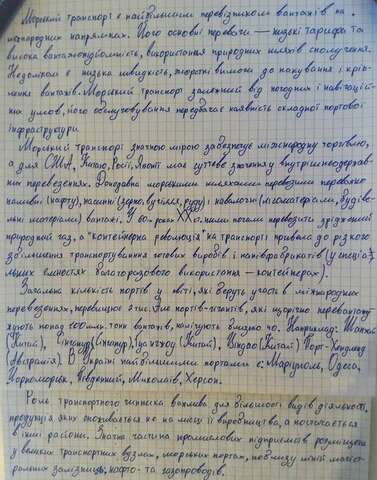 Морський транспорт є найбільшим перевізником вантажів на
міжнародних напрямках. Його основні переваги — низькі тарифи та
висока вантажопідйомність, використання природних шляхів сполучення.
Недоліком є низька швидкість, жорсткі вимоги до пакування і кріп-
лення вантажів. Морський транспорт залежний від погодних і навігацій-
них умов, його обслуговування передбачає наявність складної портової
інфраструктури.
Морський транспорт значною мірою забезпечує міжнародну торгівлю,
а для США, Китаю, Росії, Японії має суттєве значення у внутрішньодержав-
них перевезеннях. Донедавна морськими шляхами перевозили переважно
наливні (нафту), насипні (зерно, вугілля, руду) і навалочні (лісоматеріали, будіве-
льні матеріали) вантажі. У 60-х роках XX ст. ними почали перевозити зріджений
природний газ, а "контейнерна революція" на транспорті призвела до різкого
збільшення транспортування готових виробів і напівфабрикатів (у спеціа-
льних ємностях багаторазового використання — контейнерах).
Загальна кількість портів у світі, які беруть участь в міжнародних
перевезеннях, перевищує 2 тис. Але портів-гігантів, які щорічно перевантажу-
ють понад 100 млн. тонн вантажів, налічують близько 40. Наприклад: Шанхай
(Китай), Сінгапур (Сінгапур), Гуанчжоу (Китай), Ціндао (Китай) Порт-Хедленд
(Австралія). В Україні найбільшими портами є: Маріуполь, Одеса,
Чорноморськ, Південний, Миколаїв, Херсон.
Роль транспортного чинника важлива для більшості видів діяльності,
продукція яких споживається не на місці її виробництва, а постачається
в інші райони. Значна частина промислових підприємств розміщена
у великих транспортних вузлах, морських портах, поблизу ліній магіст-
ральних залізниць, нафто- та газопроводів.